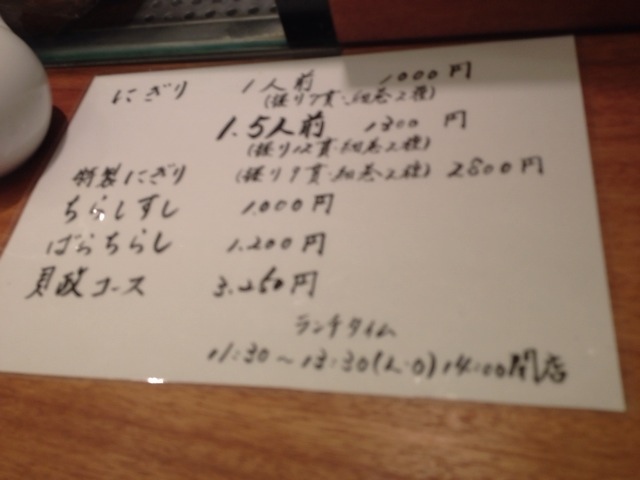 にぎり 1人前 1000円
(握り7貫・細巻2種)
1.5人前 1300円
(握り12貫・細巻2種)
特製にぎり (握り9貫・細巻2種) 2800円
ちらしすし 1.000円
ばらちらし 1.200円
貝政コース 3.250円
ランチタイム
11:30～13:30(L.O) 14:00閉店